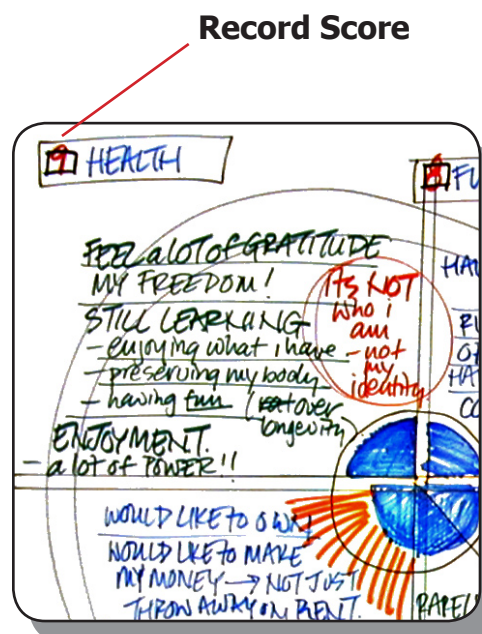 Record Score
9 HEALTH
8 FU
FEEL a LOT of GRATITUDE
MY FREEDOM!
STILL LEARNING
- enjoying what i have
- preserving my body
- having fun (over
longevity)
ENJOYMENT.
- a lot of POWER!!
ITS NOT
who i
am
- not
my
identity
HAV
HAT
CO
WOULD LIKE TO OWN
WOULD LIKE TO MAKE
MY MONEY → NOT JUST
THROW AWAY ON RENT.